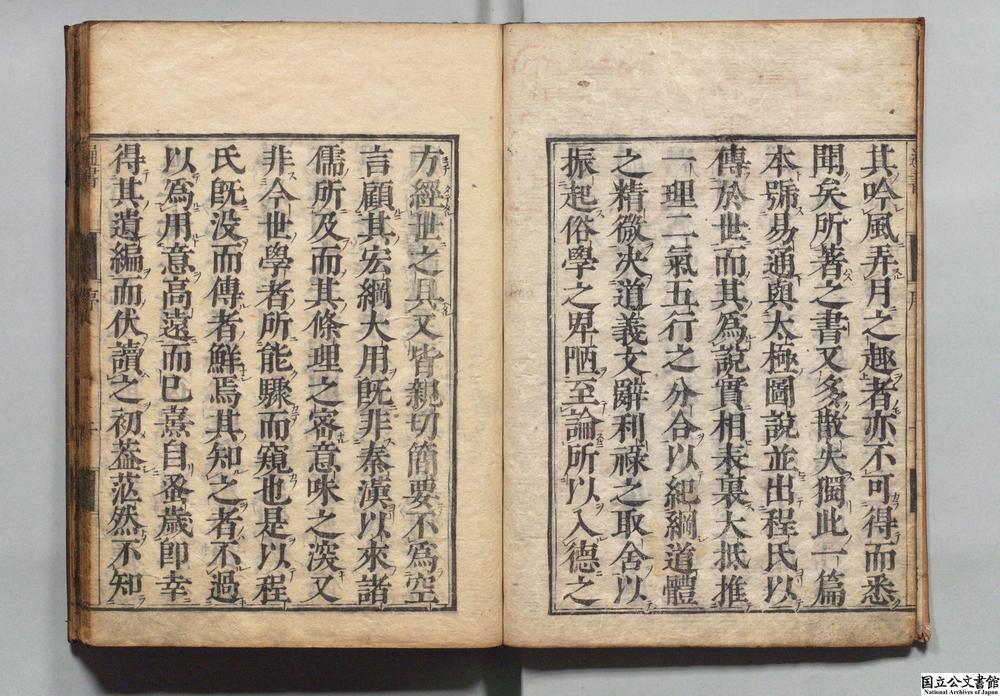 其吟風弄月之趣者亦不可得而悉
聞矣所著之書又多散失獨此一篇
本號易通與太極圖說並出程氏以
傳於世而其為說實相表裏大抵推
一理二氣五行之分合以紀綱道體
之精微決道義文辭利祿之取舍以
振起俗學之卑陋至論所以入德之
方經世之具又皆親切簡要不為空
言顧其宏綱大用既非秦漢以來諸
儒所及而其條理之密意味之深又
非今世學者所能驟而窺也是以程
氏既没而傳者鮮焉其知之者不過
以為用意高遠而已熹自蚤歲即幸
得其遺編而伏讀之初葢茫然不知
通書
序
国立公文書館
National Archives of Japan